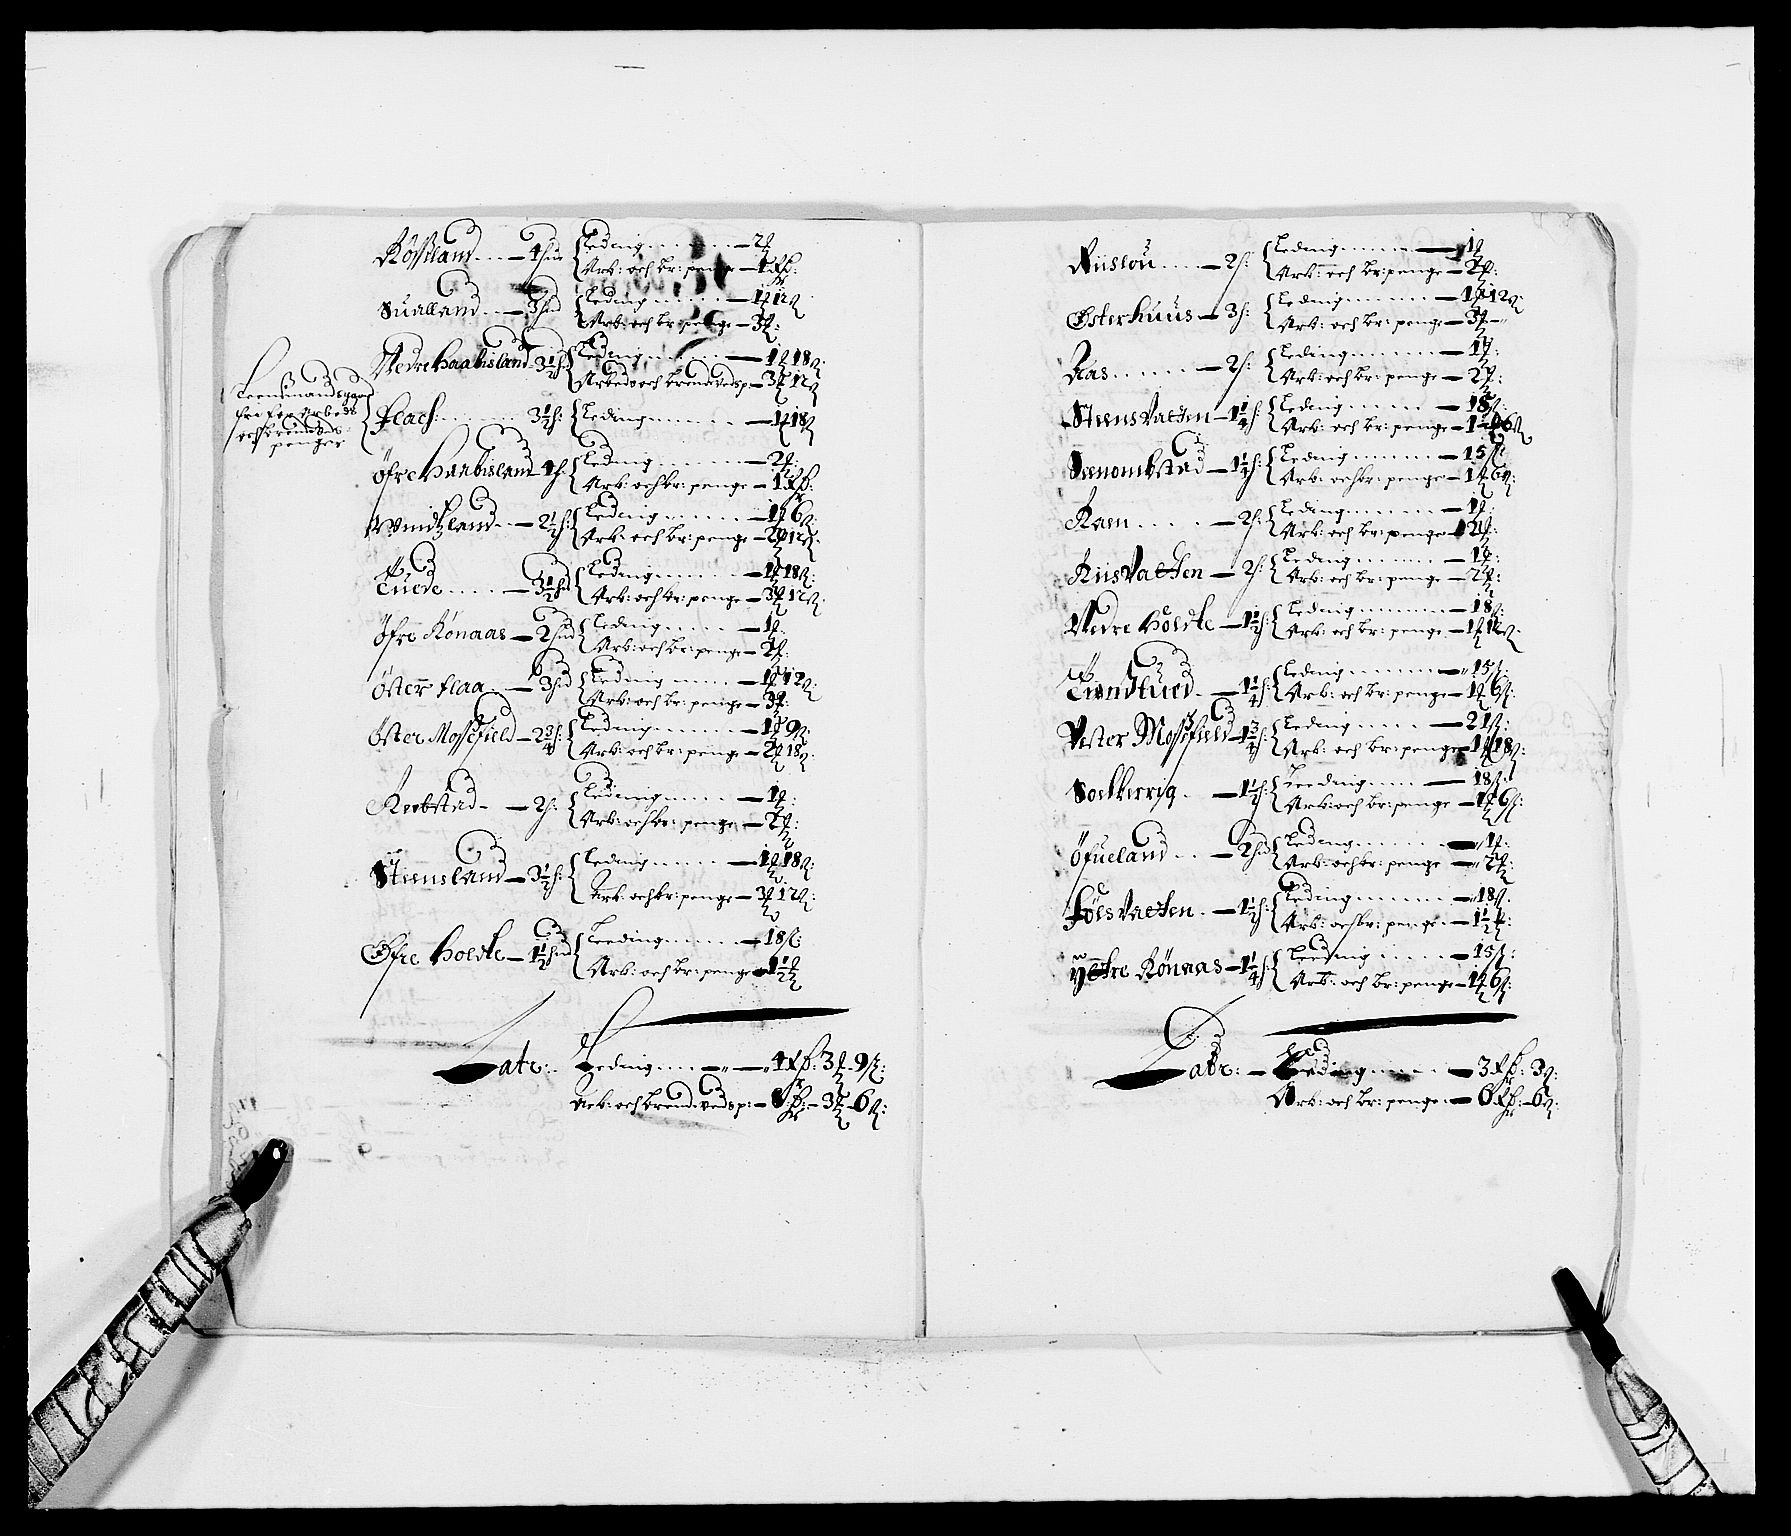 Røßland — 4 hud { Leding — 2 ₰
Arb: och br: penge — 1 Rß:
Sualland — 3 hud { Leding — 1 ₰ 12 ß
Arb: och br: penge — 3 ₰:
Nedre Haabisland 3½ h: { Leding — 1 ₰ 18 ß:
Arbeds och brendevedsp: — 3 ₰ 12 ß
Leensmands gaar
fri for Arbeds
och brendeds
penger
Flach: 3½ h: { Leding — 1 ₰ 18 ß
Öfre Haabisland 4 h: { Leding — 2 ₰:
Arb: och br: penge — 1 Rß:
Windtzland — 2½ h: { Leding — 1 ₰ 6 ß:
Arb: och br: penge — 2 ₰ 12 ß:
Tuede — 3½ hd { Leding — 1 ₰ 18 ß:
Arb: och br: penge — 3 ₰ 12 ß:
Öfre Rønaas — 2 hud { Leding — 1 ₰:
Arb: och br: penge — 2 ₰:
Öster flaa — 3 hud { Leding — 1 ₰ 12 ß:
Arb: och br: penge — 3 ₰:
Öster Moßefield — 2¾ h: { Leding — 1 ₰ 9 ß:
Arb: och br: penge — 2 ₰ 18 ß:
Reebstad — 2 h: { Leding — 1 ₰:
Arb: och br: penge — 2 ₰:
Steensland — 3½ h: { Leding — 1 ₰ 18 ß:
Arb: och br: penge — 3 ₰ 12 ß:
Øfre Holdte — 1½ hud { Leeding — 18 ß:
Arb: och br: penge — 1½ ₰
Latr: Leding — 4 Rß: 3 ₰ 9 ß:
Arb: och brendevedsp: — 8 Rß: — 3 ₰ — 6 ß:
Riislou — 2 h: { Leding — 1 ₰
Arb: och br: penge — 2 ₰:
Østerhuus — 3 h: { Leding — 1 ₰ 12 ß:
Arb: och br: penge — 3 ₰
Raas — 2 h: { Leding — 1 ₰:
Arb: och br: penge — 2 ₰:
Steensvatten — 1¼ h: { Leding — 15 ß:
Arb: och br: penge — 1 ₰ 6 ß
Sænombstad — 1¼ h: { Leding — 15 ß
Arb: och br: penge — 1 ₰ 6 ß:
Ram — 2 h: { Leding — 1 ₰:
Arb: och br: penge — 2 ₰:
Riisvatten — 2 h: { Leding — 1 ₰:
Arb: och br: penge — 2 ₰:
Nedre Holdte — 1½ h: { Leding — 18 ß:
Arb: och br: penge — 1 ₰ 12 ß:
Trondtued — 1¼ h: { Leding — 15 ß:
Arb: och br: penge — 1 ₰ 6 ß:
Vester Moßefield — 1¾ h: { Leding — 21 ß:
Arb: och br: penge — 1 ₰ 18 ß:
Soelkerrig — 1½ h: { Leeding — 18 ß:
Arb: och br: penge — 1 ₰ 6 ß:
Öfueland — 2 hud { Leding — 1 ₰:
Arb: och br: penge — 2 ₰:
Følsvatten — 1½ h: { Leding — 18 ß.
Arb: och br: penge — 1½ ₰:
Yttre Rønaas — 1¼ h: { Leeding — 15 ß:
Arb: och br: penge — 1 ₰ 6 ß:
Latr: — Leeding — 3 Rß: 3 ß:
Arb: och br: penge — 6 Rß: — 6 ß: